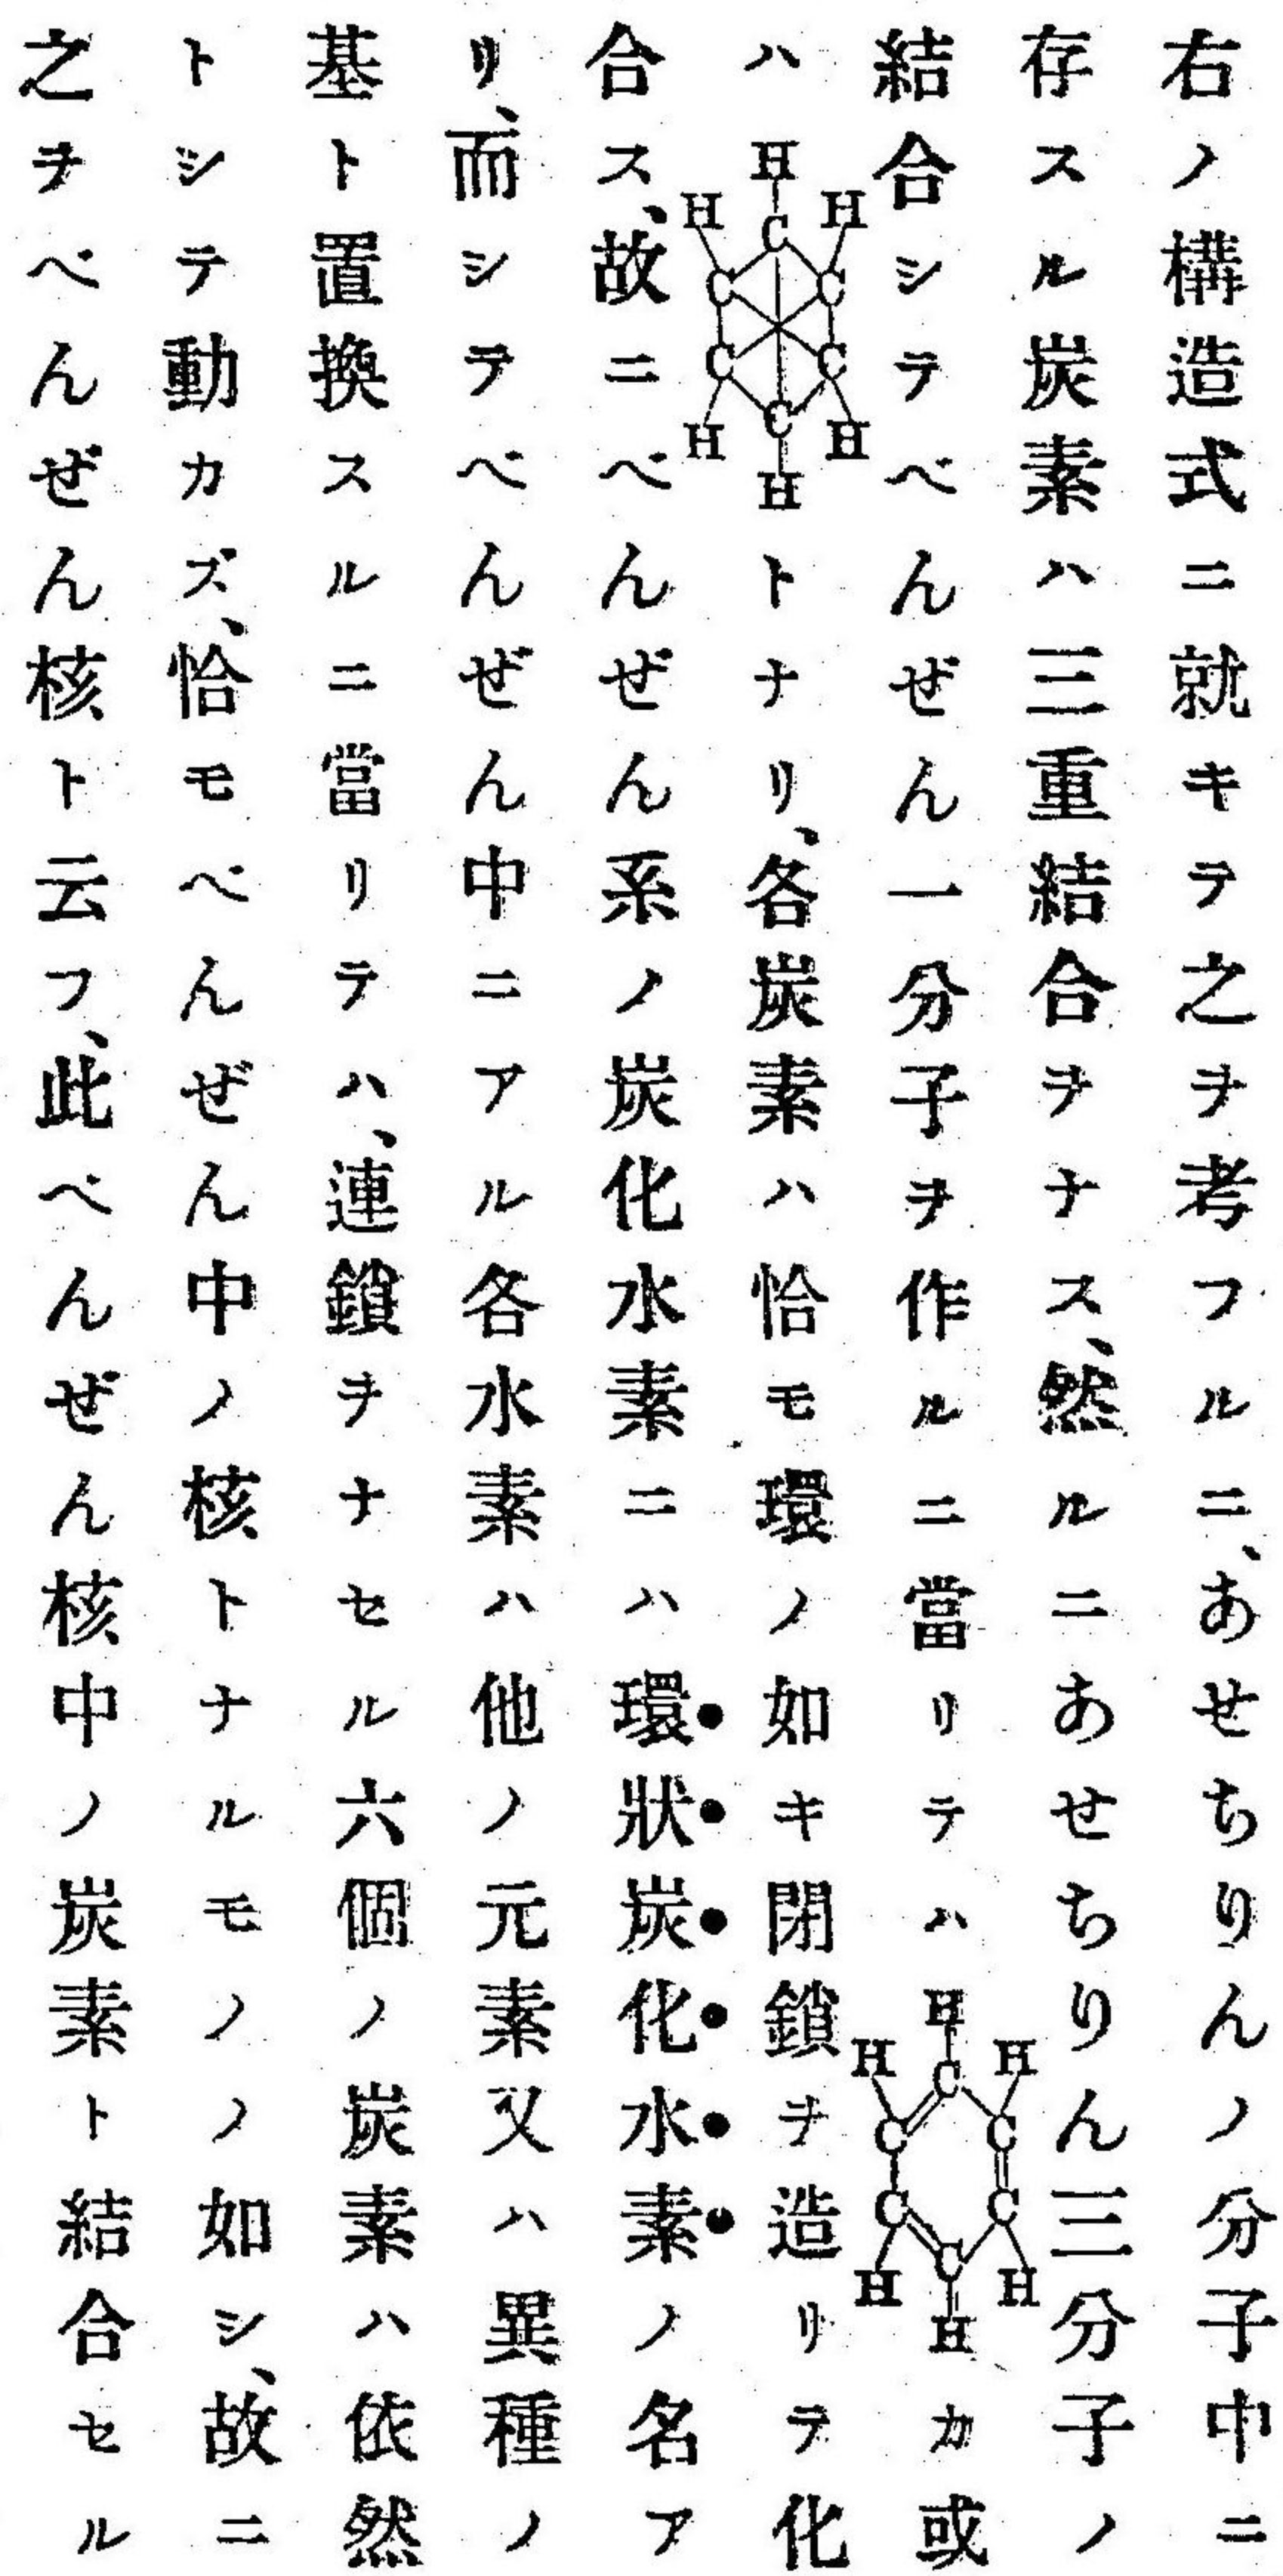 右ノ構造式ニ就キテ之ヲ考フルニ、あせちりんノ分子中ニ
存スル炭素ハ三重結合ヲナス、然ルニあせちりん三分子ノ
結合シテべんぜん一分子ヲ作ルニ當リテハHHHCCCCCCHHHカ或
ハHHHCCCCCCHHHトナリ、各炭素ハ恰モ環ノ如キ閉鎖ヲ造リテ化
合ス、故ニべんぜん系ノ炭化水素ニハ環狀炭化水素ノ名ア
リ、而シテべんぜん中ニアル各水素ハ他ノ元素又ハ異種ノ
基ト置換スルニ當リテハ、連鎖ヲナセル六個ノ炭素ハ依然
トシテ動カズ、恰モべんぜん中ノ核トナルモノノ如シ、故ニ
之ヲべんぜん核ト云フ、此べんぜん核中ノ炭素ト結合セル